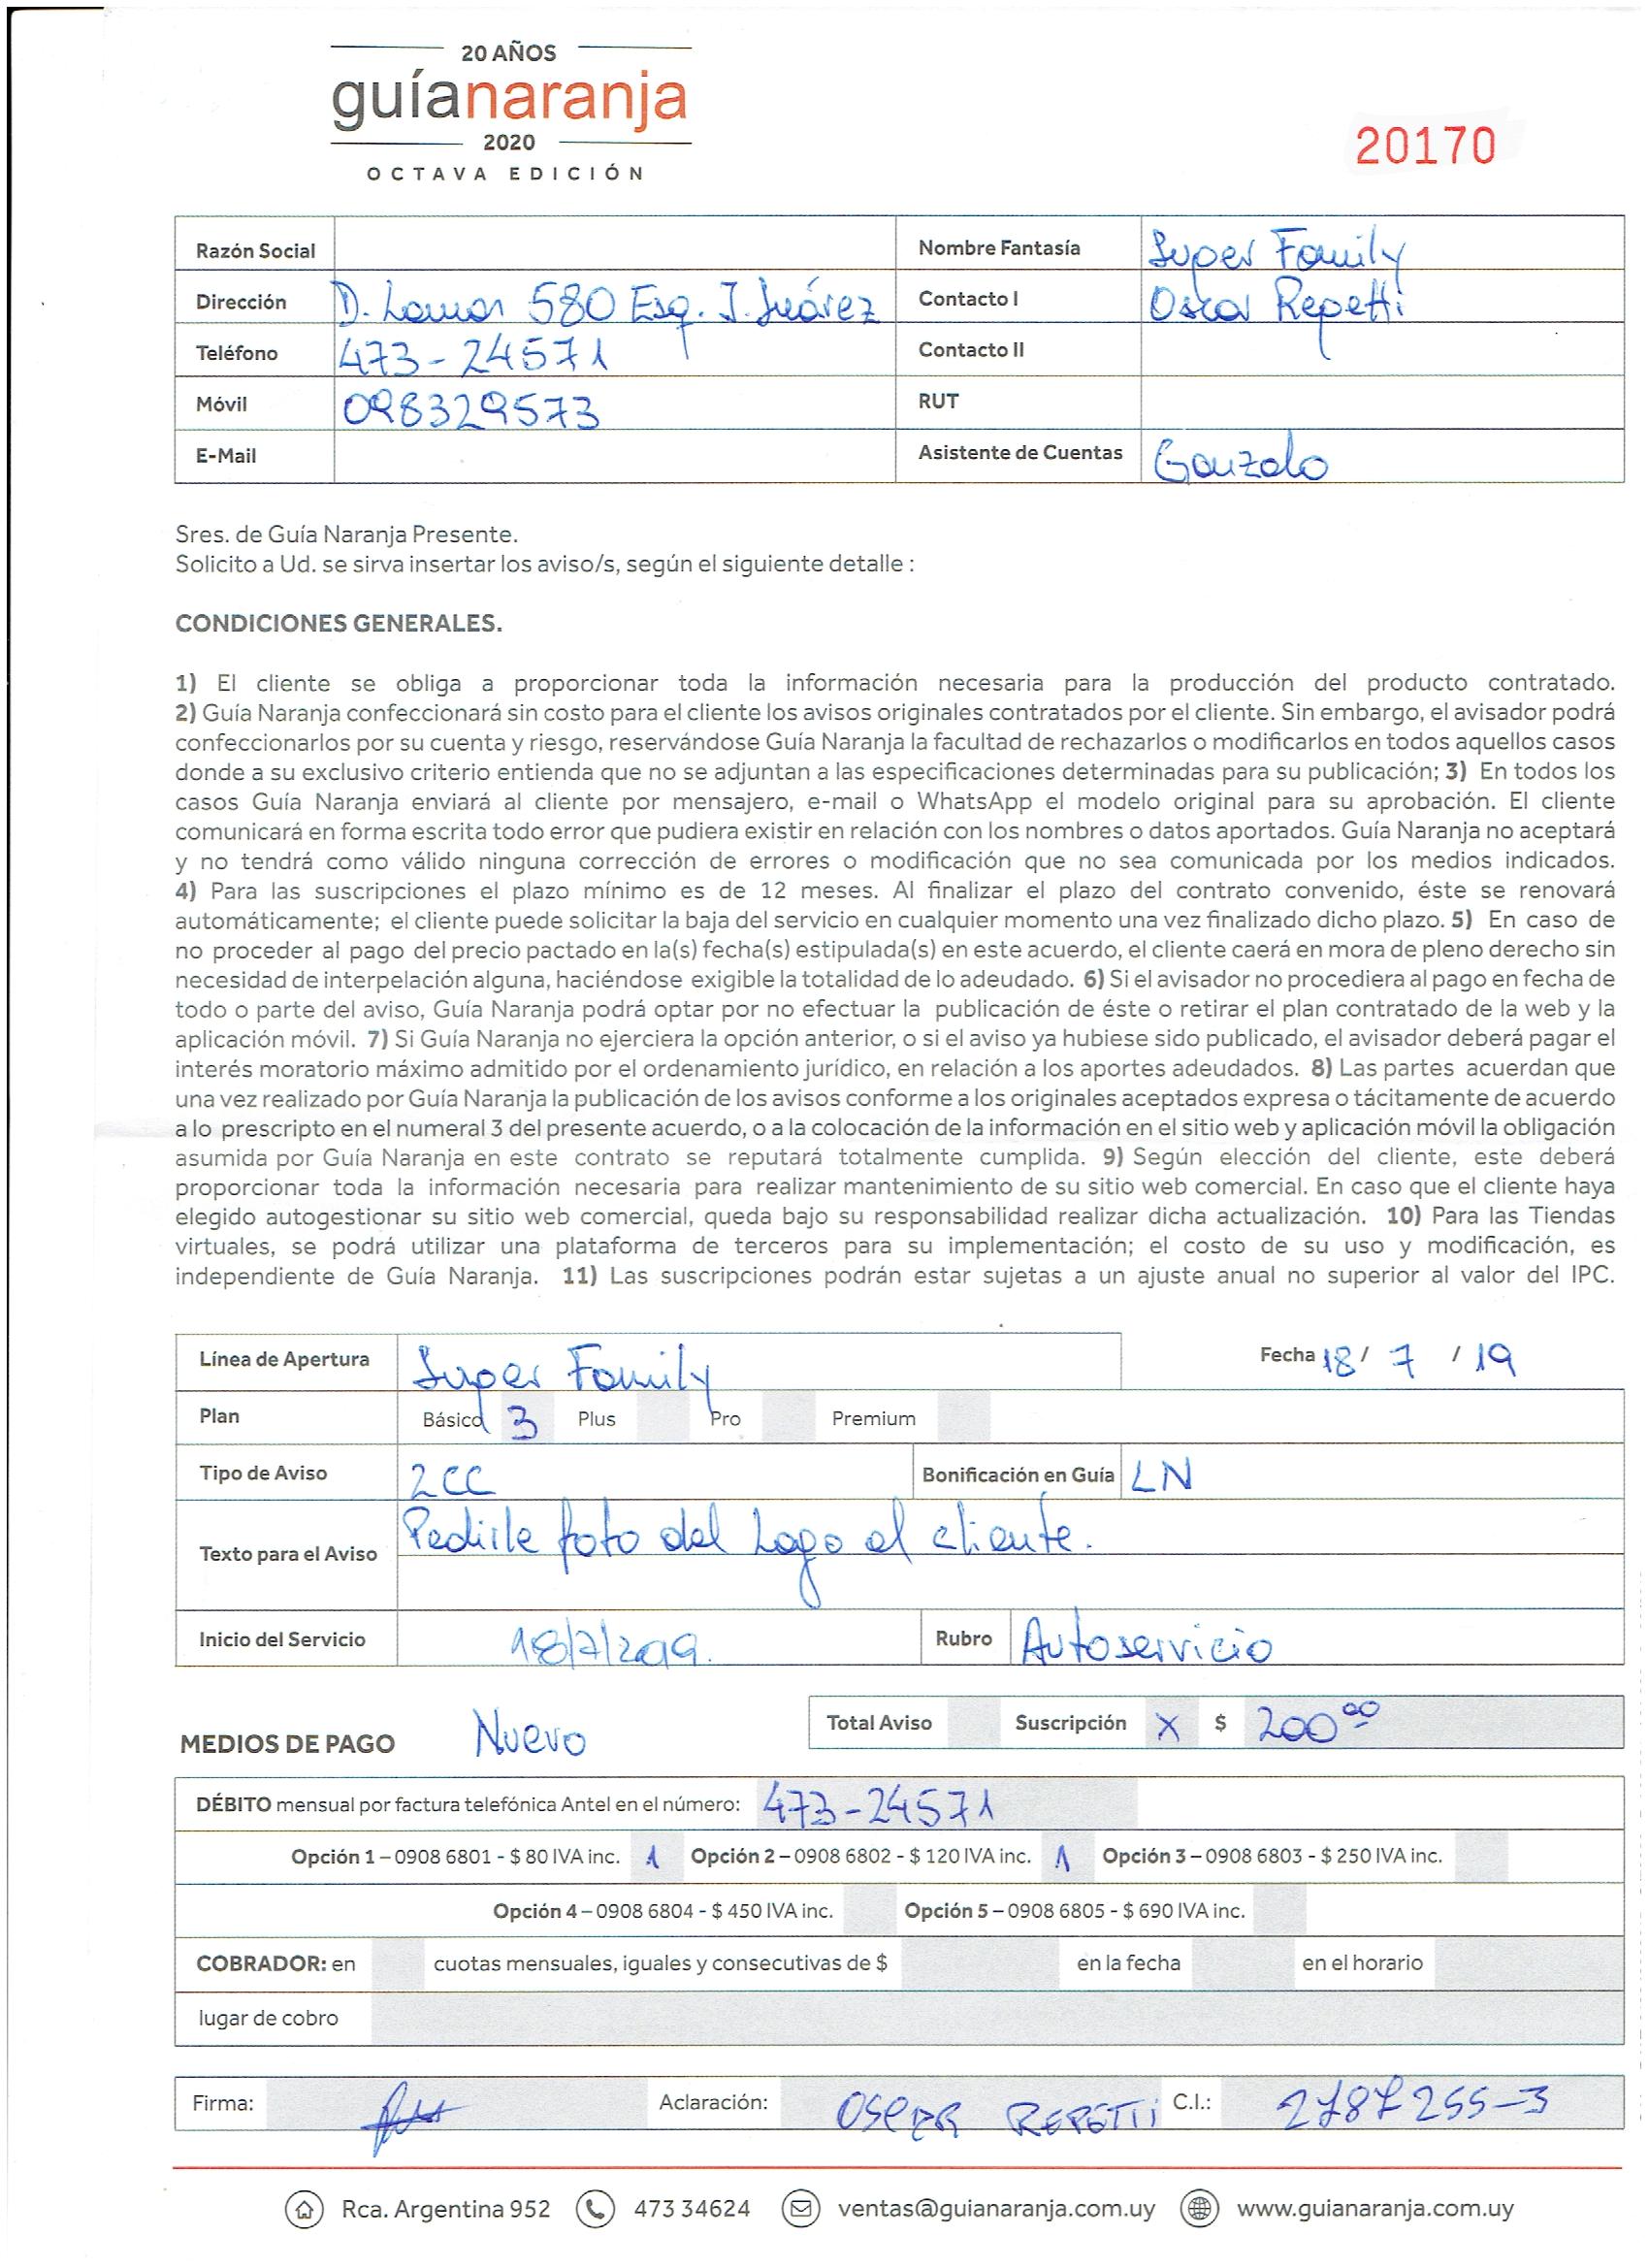 20 AÑOS
guíanaranja
2020
OCTAVA EDICIÓN
20170
Razón Social
Nombre Fantasía Super Family
Dirección D. Lamas 580 Esq. J. Juárez
Contacto I Oscar Repetti
Teléfono 473-24571
Contacto II
Móvil 098329573
RUT
E-Mail
Asistente de Cuentas Gonzalo
Sres. de Guía Naranja Presente.
Solicito a Ud. se sirva insertar los aviso/s, según el siguiente detalle :
CONDICIONES GENERALES.
1) El cliente se obliga a proporcionar toda la información necesaria para la producción del producto contratado.
2) Guía Naranja confeccionará sin costo para el cliente los avisos originales contratados por el cliente. Sin embargo, el avisador podrá
confeccionarlos por su cuenta y riesgo, reservándose Guía Naranja la facultad de rechazarlos o modificarlos en todos aquellos casos
donde a su exclusivo criterio entienda que no se adjuntan a las especificaciones determinadas para su publicación; 3) En todos los
casos Guía Naranja enviará al cliente por mensajero, e-mail o WhatsApp el modelo original para su aprobación. El cliente
comunicará en forma escrita todo error que pudiera existir en relación con los nombres o datos aportados. Guía Naranja no aceptará
y no tendrá como válido ninguna corrección de errores o modificación que no sea comunicada por los medios indicados.
4) Para las suscripciones el plazo mínimo es de 12 meses. Al finalizar el plazo del contrato convenido, éste se renovará
automáticamente; el cliente puede solicitar la baja del servicio en cualquier momento una vez finalizado dicho plazo. 5) En caso de
no proceder al pago del precio pactado en la(s) fecha(s) estipulada(s) en este acuerdo, el cliente caerá en mora de pleno derecho sin
necesidad de interpelación alguna, haciéndose exigible la totalidad de lo adeudado. 6) Si el avisador no procediera al pago en fecha de
todo o parte del aviso, Guía Naranja podrá optar por no efectuar la publicación de éste o retirar el plan contratado de la web y la
aplicación móvil. 7) Si Guía Naranja no ejerciera la opción anterior, o si el aviso ya hubiese sido publicado, el avisador deberá pagar el
interés moratorio máximo admitido por el ordenamiento jurídico, en relación a los aportes adeudados. 8) Las partes acuerdan que
una vez realizado por Guía Naranja la publicación de los avisos conforme a los originales aceptados expresa o tácitamente de acuerdo
a lo prescripto en el numeral 3 del presente acuerdo, o a la colocación de la información en el sitio web y aplicación móvil la obligación
asumida por Guía Naranja en este contrato se reputará totalmente cumplida. 9) Según elección del cliente, este deberá
proporcionar toda la información necesaria para realizar mantenimiento de su sitio web comercial. En caso que el cliente haya
elegido autogestionar su sitio web comercial, queda bajo su responsabilidad realizar dicha actualización. 10) Para las Tiendas
virtuales, se podrá utilizar una plataforma de terceros para su implementación; el costo de su uso y modificación, es
independiente de Guía Naranja. 11) Las suscripciones podrán estar sujetas a un ajuste anual no superior al valor del IPC.
Línea de Apertura Super Family
Fecha 18/ 7 / 19
Plan Básico 3 Plus Pro Premium
Tipo de Aviso 2CC Bonificación en Guía LN
Texto para el Aviso Pedirle foto del Logo al cliente.
Inicio del Servicio 18/7/2019. Rubro Autoservicio
MEDIOS DE PAGO Nuevo
Total Aviso Suscripción X $ 200 00
DÉBITO mensual por factura telefónica Antel en el número: 473-24571
Opción 1 – 0908 6801 - $ 80 IVA inc. 1 Opción 2 – 0908 6802 - $ 120 IVA inc. 1 Opción 3 – 0908 6803 - $ 250 IVA inc.
Opción 4 – 0908 6804 - $ 450 IVA inc. Opción 5 – 0908 6805 - $ 690 IVA inc.
COBRADOR: en cuotas mensuales, iguales y consecutivas de $ en la fecha en el horario
lugar de cobro
Firma: Aclaración: OSCAR REPETTI C.I.: 2787255-3
Rca. Argentina 952 473 34624 ventas@guianaranja.com.uy www.guianaranja.com.uy